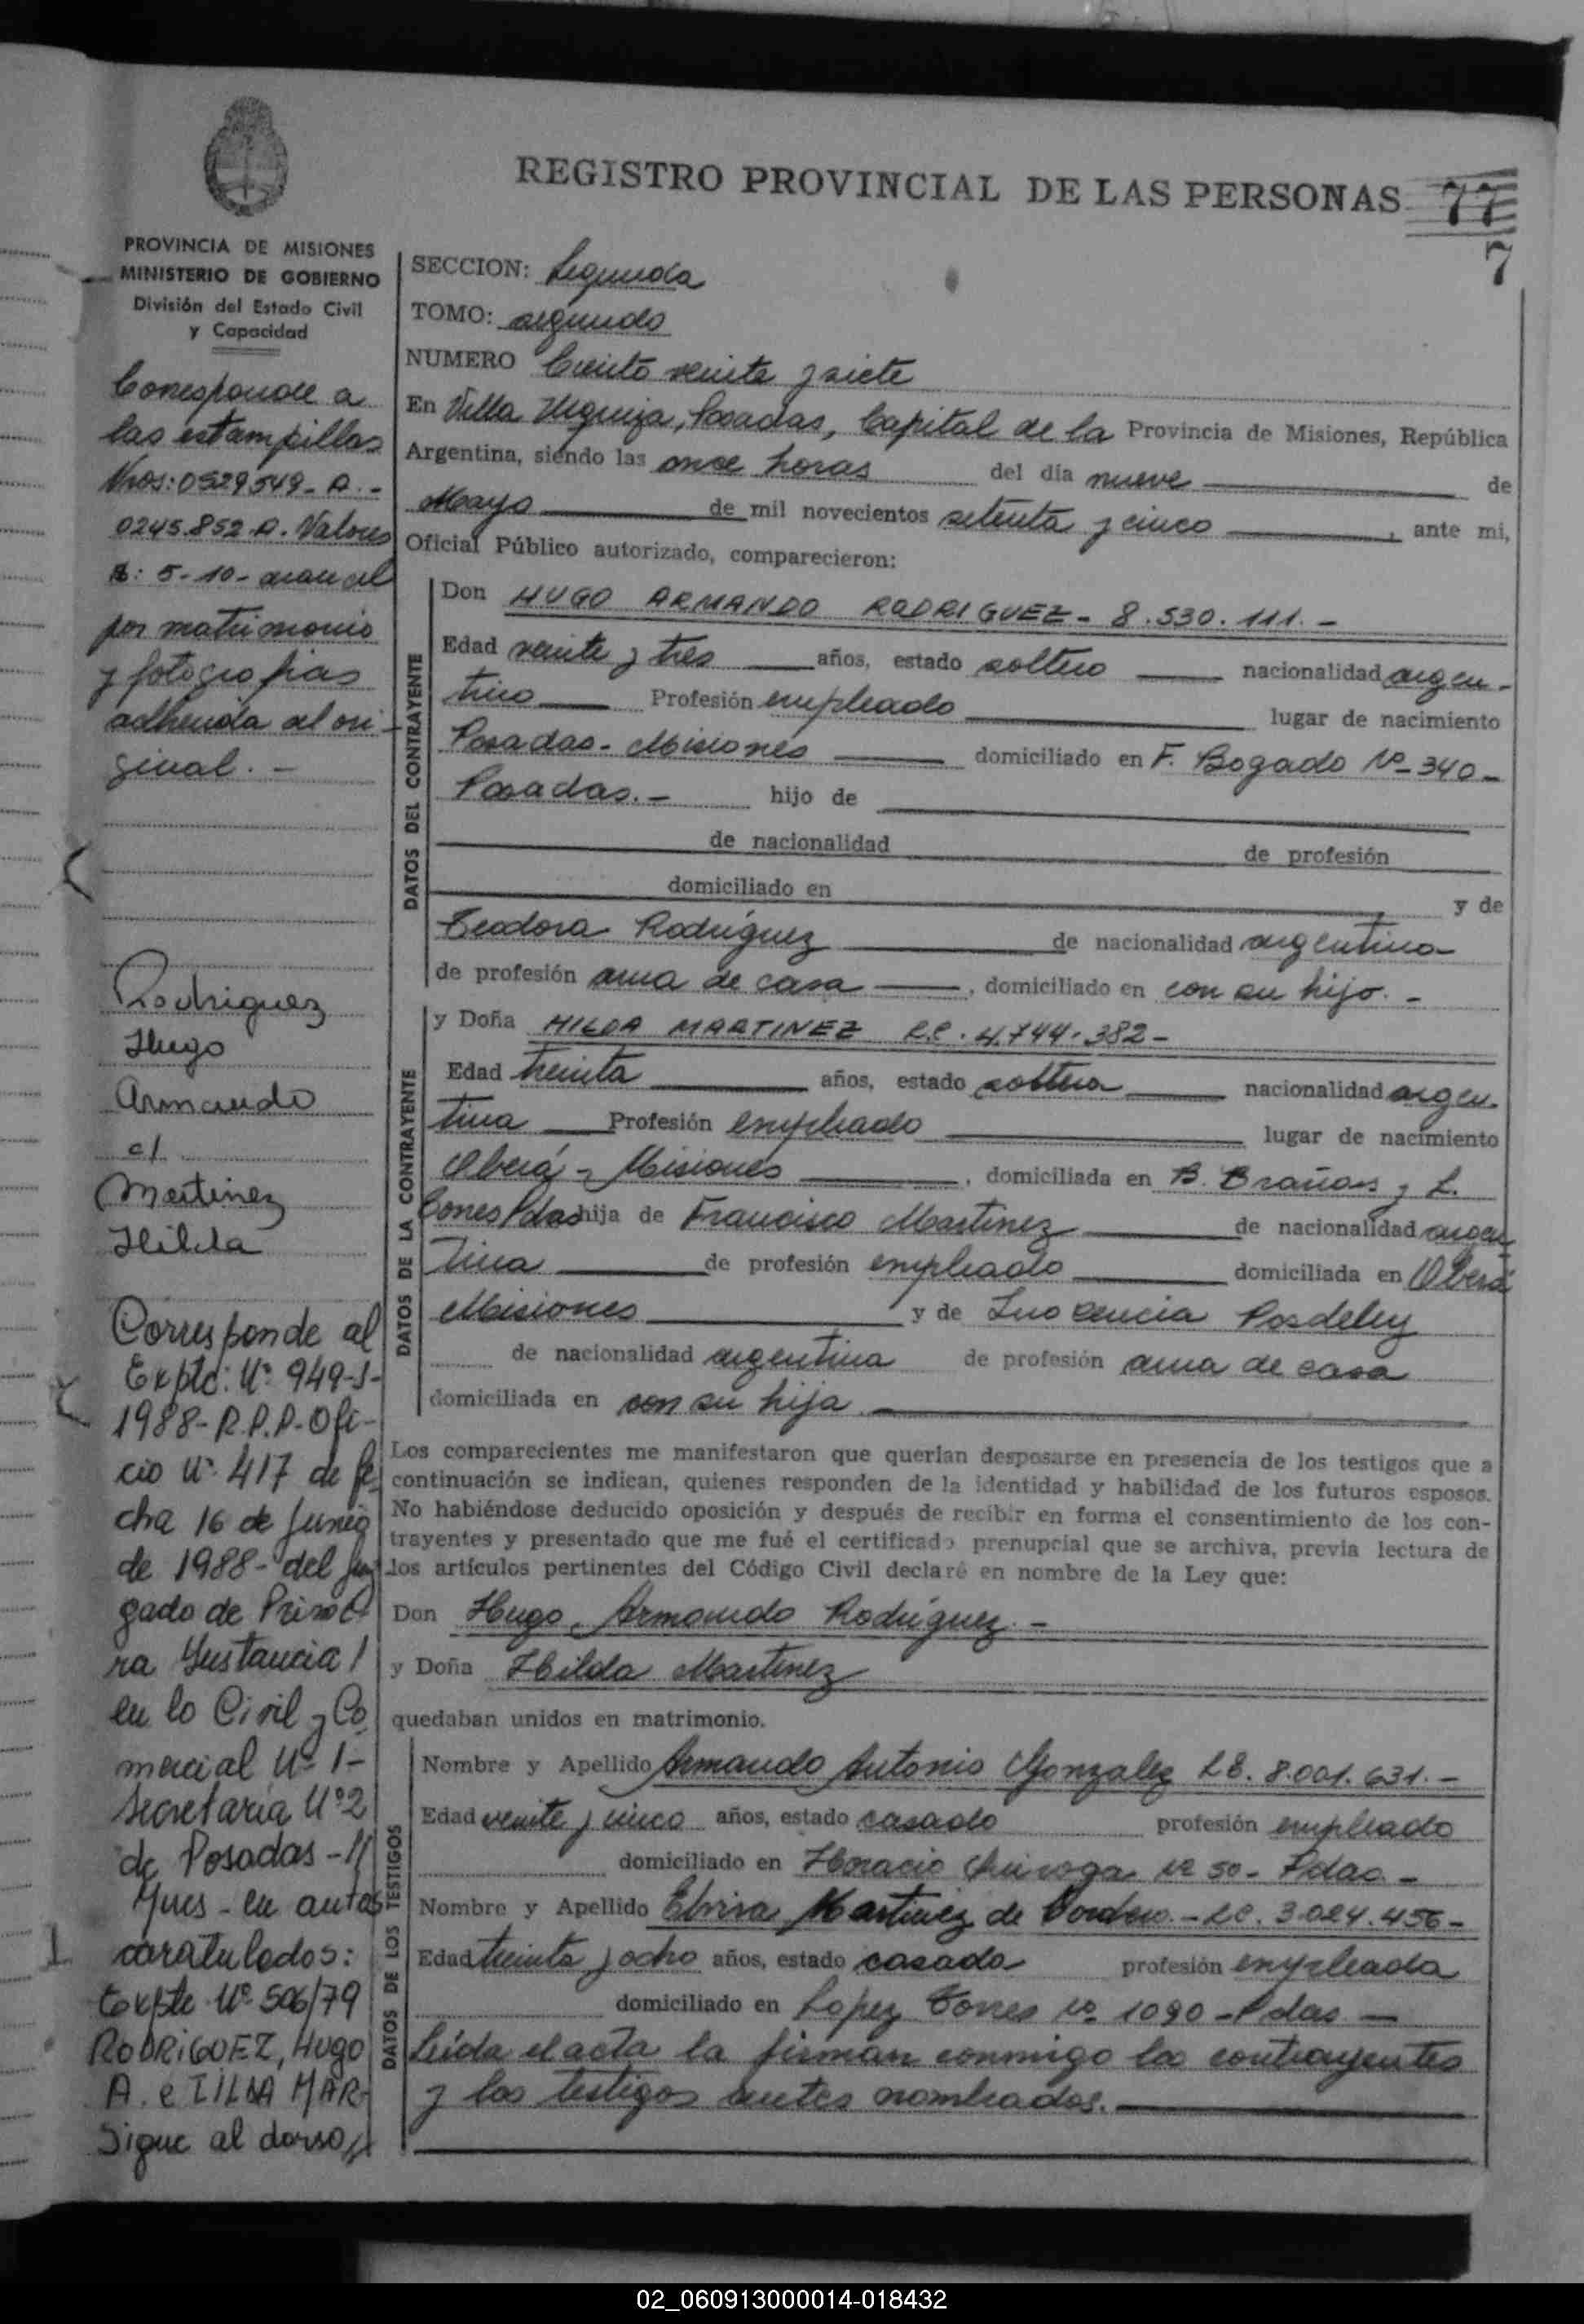 REGISTRO PROVINCIAL DE LAS PERSONAS 77
7
PROVINCIA DE MISIONES
MINISTERIO DE GOBIERNO
División del Estado Civil
y Capacidad
Corresponde a
las estampillas
Nros: 0529549-A.-
0245.852.A. Valores
$: 5-10- arancel
por matrimonio
y fotografias
adherida al ori-
ginal.-
Rodriguez
Hugo
Armando
c/
Martinez
Hilda
Corresponde al
Expte: Nº 949-J-
1988-R.P.P-Ofi-
cio Nº 417 de fe
cha 16 de Junio
de 1988- del Juz
gado de Prime
ra Instancia
en lo Civil y Co
mercial Nº 1-
Secretaria Nº 2
de Posadas-
Mnes- en autos
caratulados:
Expte Nº 506/79
RODRIGUEZ, HUGO
A. e ILDA MAR-
Sigue al dorso
SECCION: Segunda
TOMO: segundo
NUMERO Ciento veinte y siete
En Villa Urquiza, Posadas, Capital de la Provincia de Misiones, República
Argentina, siendo las once horas del día nueve de
Mayo de mil novecientos setenta y cinco, ante mi,
Oficial Público autorizado, comparecieron:
DATOS DEL CONTRAYENTE
Don HUGO ARMANDO RODRIGUEZ - 8.530.111.-
Edad veinte y tres años, estado soltero nacionalidad argen-
tino Profesión empleado lugar de nacimiento
Posadas - Misiones domiciliado en F. Bogado Nº 340-
Posadas.- hijo de
de nacionalidad de profesión
domiciliado en y de
Teodora Rodríguez de nacionalidad argentina
de profesión ama de casa, domiciliado en con su hijo.-
DATOS DE LA CONTRAYENTE
y Doña HILDA MARTINEZ L.C. 4.744.382-
Edad treinta años, estado soltera nacionalidad argen-
tina Profesión empleado lugar de nacimiento
Oberá - Misiones, domiciliada en B. Brañas y L.
Torres Pdas hija de Francisco Martinez de nacionalidad argen
tina de profesión empleado domiciliada en Oberá
Misiones y de Inocencia
de nacionalidad argentina de profesión ama de casa
domiciliada en con su hija.
Los comparecientes me manifestaron que querían desposarse en presencia de los testigos que a
continuación se indican, quienes responden de la identidad y habilidad de los futuros esposos.
No habiéndose deducido oposición y después de recibir en forma el consentimiento de los con-
trayentes y presentado que me fué el certificado prenupcial que se archiva, previa lectura de
los artículos pertinentes del Código Civil declaré en nombre de la Ley que:
Don Hugo Armando Rodríguez.-
y Doña Hilda Martinez
quedaban unidos en matrimonio.
DATOS DE LOS TESTIGOS
Nombre y Apellido Armando Antonio Gonzalez LE. 8.001.631.-
Edad veinte y cinco años, estado casado profesión empleado
domiciliado en Horacio Quiroga Nº 50- Pdas.-
Nombre y Apellido Elvira Martinez de Cordero.- LC. 3.024.456-
Edad treinta y ocho años, estado casada profesión empleada
domiciliado en Lopez Torres Nº 1090 - Pdas.-
Leída el acta la firman conmigo los contrayentes
y los testigos antes nombrados.
02_060913000014-018432